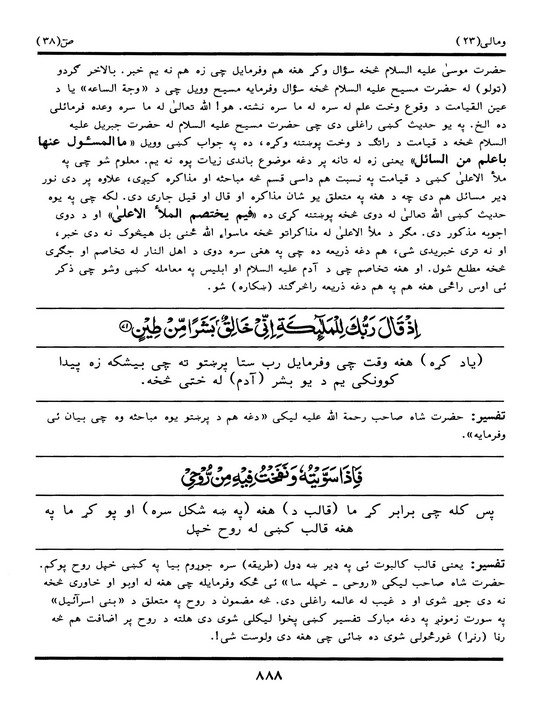 ومالى (٢٣)
صۤ (٣٨)
حضرت موسیٰ علیه السلام څخه سؤال وکړ هغه هم وفرمایل چې زه هم نه یم خبر. بالاخر ګردو
(ټولو) له حضرت مسیح علیه السلام څخه سؤال وفرمایه مسیح وویل چې د «وجبة الساعه» یا د
عین القیامت د وقوع وخت علم له سره له ما سره نشته. هو! الله تعالیٰ له ما سره وعده فرمائلې
ده الخ. په یو حدیث کښې راغلي دي چې حضرت مسیح علیه السلام له حضرت جبریل علیه
السلام څخه د قیامت د راتګ د وخت پوښتنه وکړه، ده په جواب کښې وویل «ماالمسئول عنها
باعلم من السائل» یعنې زه له تانه پر دغه موضوع باندې زیات پوه نه یم. معلوم شو چې په
ملأ الاعلیٰ کښې د قیامت په نسبت هم داسې قسم څه مباحثه او مذاکره کیږي، علاوه پر دې نور
ډیر مسائل هم دي چې د هغه په متعلق یو شان مذاکره او قال او قیل جاري دي. لکه چې په یوه
حدیث کښې الله تعالیٰ له دوی څخه پوښتنه کړې ده «فیم یختصم الملأ الاعلیٰ» او د دوی
اجوبه مذکور دي. مګر د ملأ الاعلیٰ له مذاکراتو څخه ماسواء الله ځنې بل هیڅوک نه دي خبر،
او نه ترې خبریدی شي، هم دغه ذریعه ده چې په هغې سره دوی د اهل النار له تخاصم او جګړې
څخه مطلع شول. او هغه تخاصم چې د آدم علیه السلام او ابلیس په معامله کښې وشو چې ذکر
ئې اوس راځي هغه هم په هم دغه ذریعه راڅرګند (ښکاره) شو.
اِذْ قَالَ رَبُّكَ لِلْمَلٰٓئِكَةِ اِنِّىْ خَالِقٌۢ بَشَرًا مِّنْ طِيْنٍ ﴿٧١﴾
(یاد کړه) هغه وقت چې وفرمایل رب ستا پرښتو ته چې بیشکه زه پیدا
کوونکی یم د یو بشر (آدم) له ختې څخه.
تفسیر: حضرت شاه صاحب رحمة الله علیه لیکي «دغه هم د پرښتو یوه مباحثه وه چې بیان ئې
وفرمایه».
فَاِذَا سَوَّيْتُهٗ وَنَفَخْتُ فِيْهِ مِنْ رُّوْحِىْ
پس کله چې برابر کړ ما (قالب د) هغه (په ښه شکل سره) او پو کړ ما په
هغه قالب کښې له روح خپل
تفسیر: یعنې قالب کالبوت ئې په ډیر ښه ډول (طریقه) سره جوړوم بیا په کښې خپل روح پوکم.
حضرت شاه صاحب لیکي «(روحي - خپله سا» ئې ځکه وفرمایله چې هغه له اوبو او خاورې څخه
نه دی جوړ شوی او د غیب له عالمه راغلی دی. څه مضمون د روح په متعلق د «بنی اسرآئیل»
په سورت زمونږ په دغه مبارک تفسیر کښې پخوا لیکلی شوی دی هلته د روح پر اضافت هم څه
رڼا (رڼړا) غورځولې شوې ده ښائي چې هغه دې ولوست شي!.
٨٨٨